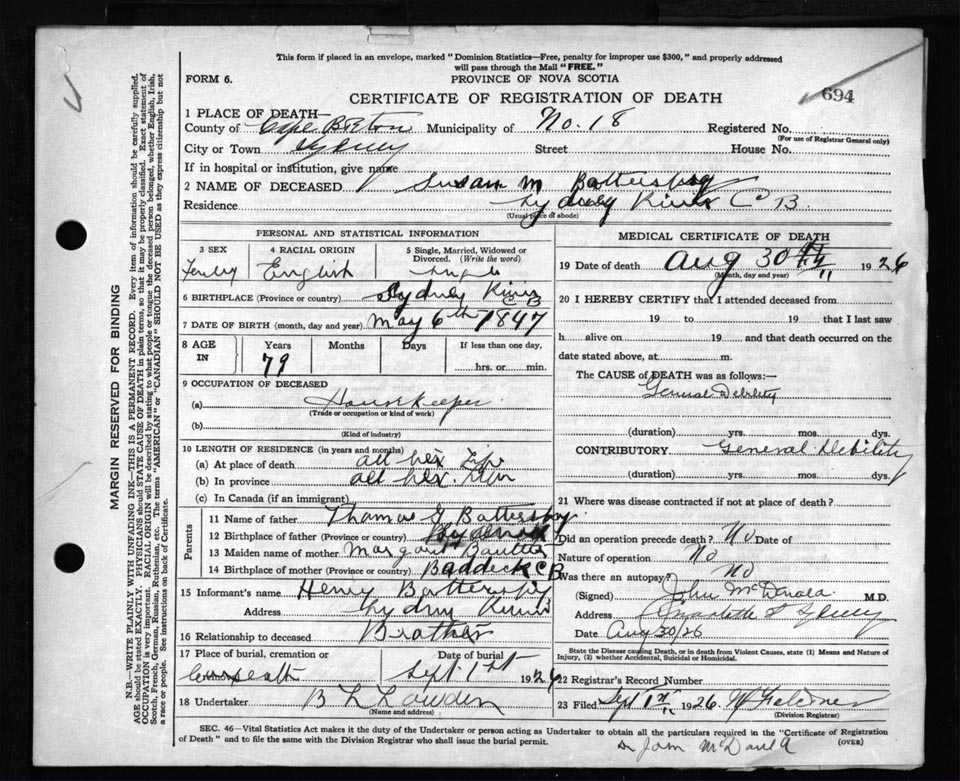 This form if placed in an envelope, marked "Dominion Statistics—Free, penalty for improper use $300," and properly addressed
will pass through the Mail "FREE."
FORM 6.
PROVINCE OF NOVA SCOTIA
CERTIFICATE OF REGISTRATION OF DEATH
694
1 PLACE OF DEATH—
County of Cape Breton Municipality of No. 18 Registered No.
(For use of Registrar General only)
City or Town Sydney Street House No.
If in hospital or institution, give name
2 NAME OF DECEASED Susan M Battersby
Residence Sydney River C B.
(Usual place of abode)
PERSONAL AND STATISTICAL INFORMATION
3 SEX 4 RACIAL ORIGIN 5 Single, Married, Widowed or
Divorced. (Write the word)
English Single
6 BIRTHPLACE (Province or country) Sydney River
C B
7 DATE OF BIRTH (month, day and year) May 6th 1847
8 AGE IN Years Months Days If less than one day,
79 hrs. or min.
9 OCCUPATION OF DECEASED
(a) Housekeeper
(Trade or occupation or kind of work)
(b)
(Kind of industry)
10 LENGTH OF RESIDENCE (in years and months)
(a) At place of death all her life
(b) In province all her life
(c) In Canada (if an immigrant)
Parents
11 Name of father Thomas G Battersby
12 Birthplace of father (Province or country)
13 Maiden name of mother Margaret
14 Birthplace of mother (Province or country) Baddeck C B
15 Informant's name Henry Battersby
Address Sydney River
16 Relationship to deceased Brother
17 Place of burial, cremation or Date of burial
Sept 1st 1926
18 Undertaker B L Lowden
(Name and address)
MEDICAL CERTIFICATE OF DEATH
19 Date of death Aug 30 1926
(Month, day and year)
20 I HEREBY CERTIFY that I attended deceased from
19 to 19 that I last saw
h alive on 19 and that death occurred on the
date stated above, at m.
The CAUSE of DEATH was as follows:—
General Debility
(duration) yrs. mos. dys.
CONTRIBUTORY General Debility
(duration) yrs. mos. dys.
21 Where was disease contracted if not at place of death?
Did an operation precede death? No Date of
Nature of operation No
Was there an autopsy? No
(Signed) John McDonald M.D.
Address Charlotte St Sydney
Date Aug 30/26
State the Disease causing Death, or in death from Violent Causes, state (1) Means and Nature of
Injury, (2) whether Accidental, Suicidal or Homicidal.
22 Registrar's Record Number
23 Filed Sept 1st 1926
(Division Registrar)
SEC. 46—Vital Statistics Act makes it the duty of the Undertaker or person acting as Undertaker to obtain all the particulars required in the "Certificate of Registration
of Death" and to file the same with the Division Registrar who shall issue the burial permit.
(OVER)
Dr John McDonald
MARGIN RESERVED FOR BINDING
N.B.—WRITE PLAINLY WITH UNFADING INK—THIS IS A PERMANENT RECORD. Every item of information should be carefully supplied.
AGE should be stated EXACTLY. PHYSICIANS should STATE CAUSE OF DEATH in plain terms, so that it may be properly classified. Exact statement of
OCCUPATION is very important. RACIAL ORIGIN will be described by stating to what people or tongue the deceased person belonged, whether English, Irish,
Scotch, French, German, Russian, Ruthenian, etc. The terms "AMERICAN" or "CANADIAN" SHOULD NOT BE USED as they express citizenship but not
a race or people. See instructions on back of Certificate.